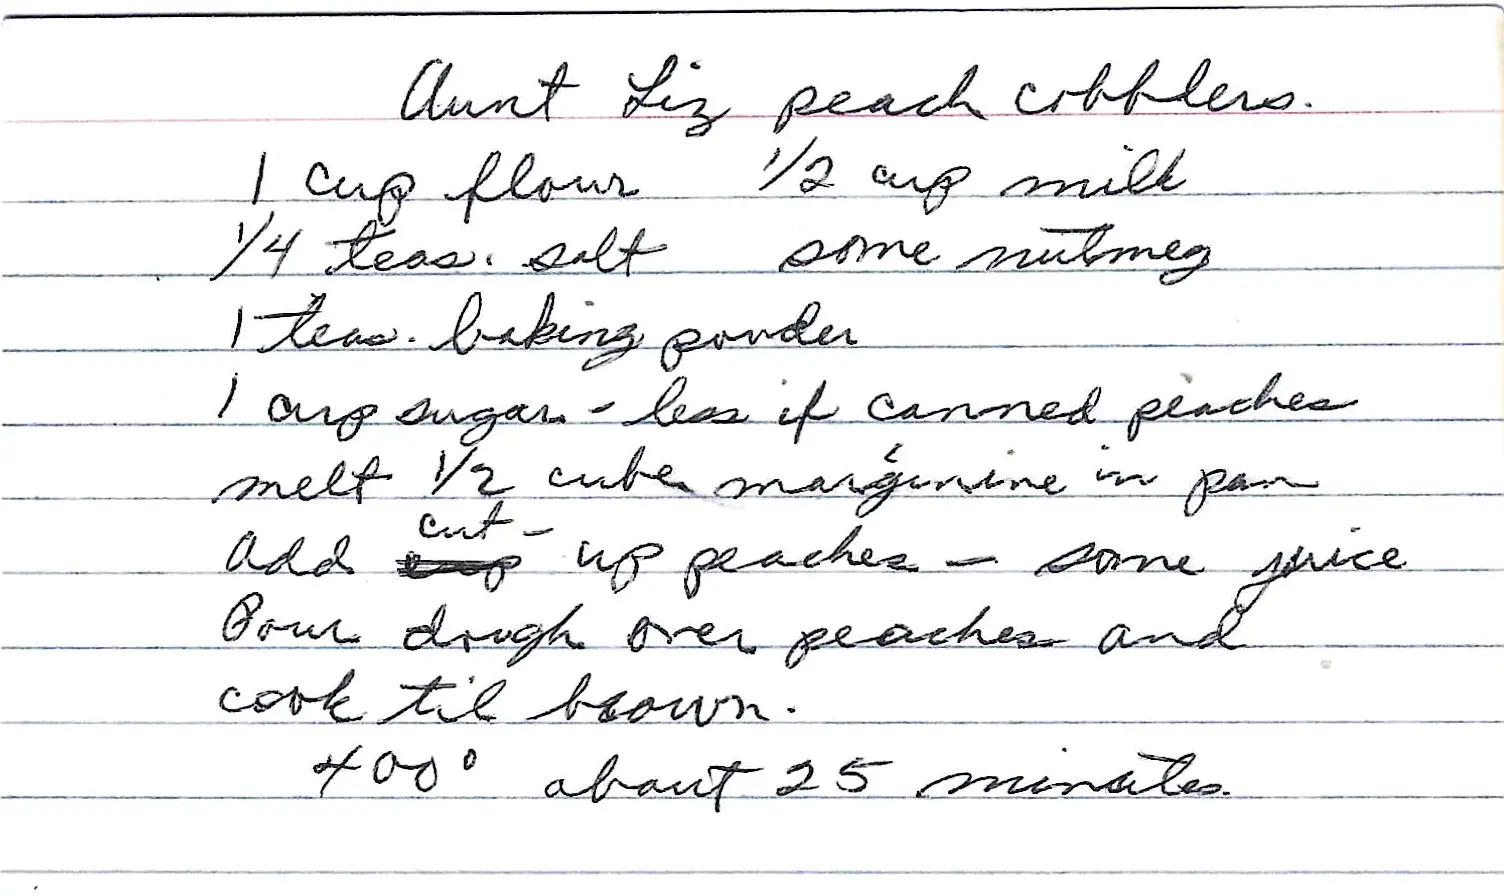 Aunt Liz peach cobblers.
1 cup flour 1/2 cup milk
1/4 teas. salt some nutmeg
1 teas. baking powder
1 cup sugar - less if canned peaches
melt 1/2 cube marginine in pan
add cut - up peaches - some juice
Pour dough over peaches and
cook til brown.
400° about 25 minutes.